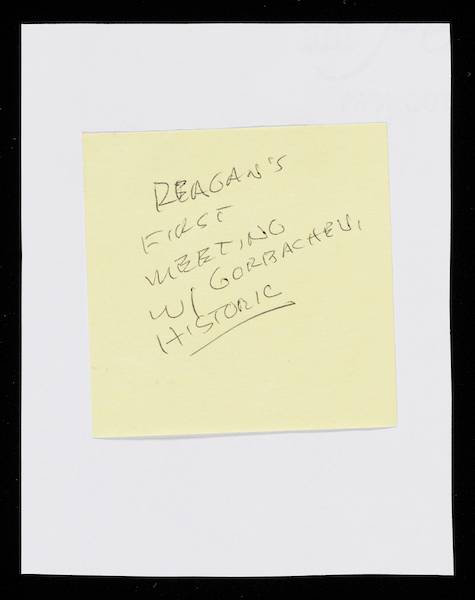 REAGAN'S
FIRST
MEETING
W/ GORBACHEV,
HISTORIC